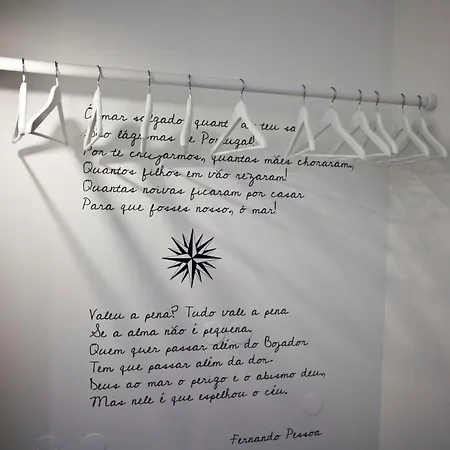 Ó mar salgado quant teu sa
são lágrimas e Portugal!
Por te cruzarmos, quantas mães choraram,
Quantos filhos em vão rezaram!
Quantas noivas ficaram por casar
Para que fosses nosso, ó mar!
Valeu a pena? Tudo vale a pena
Se a alma não é pequena.
Quem quer passar além do Bojador
Tem que passar além da dor.
Deus ao mar o perigo e o abismo deu,
Mas nele é que espelhou o céu.
Fernando Pessoa